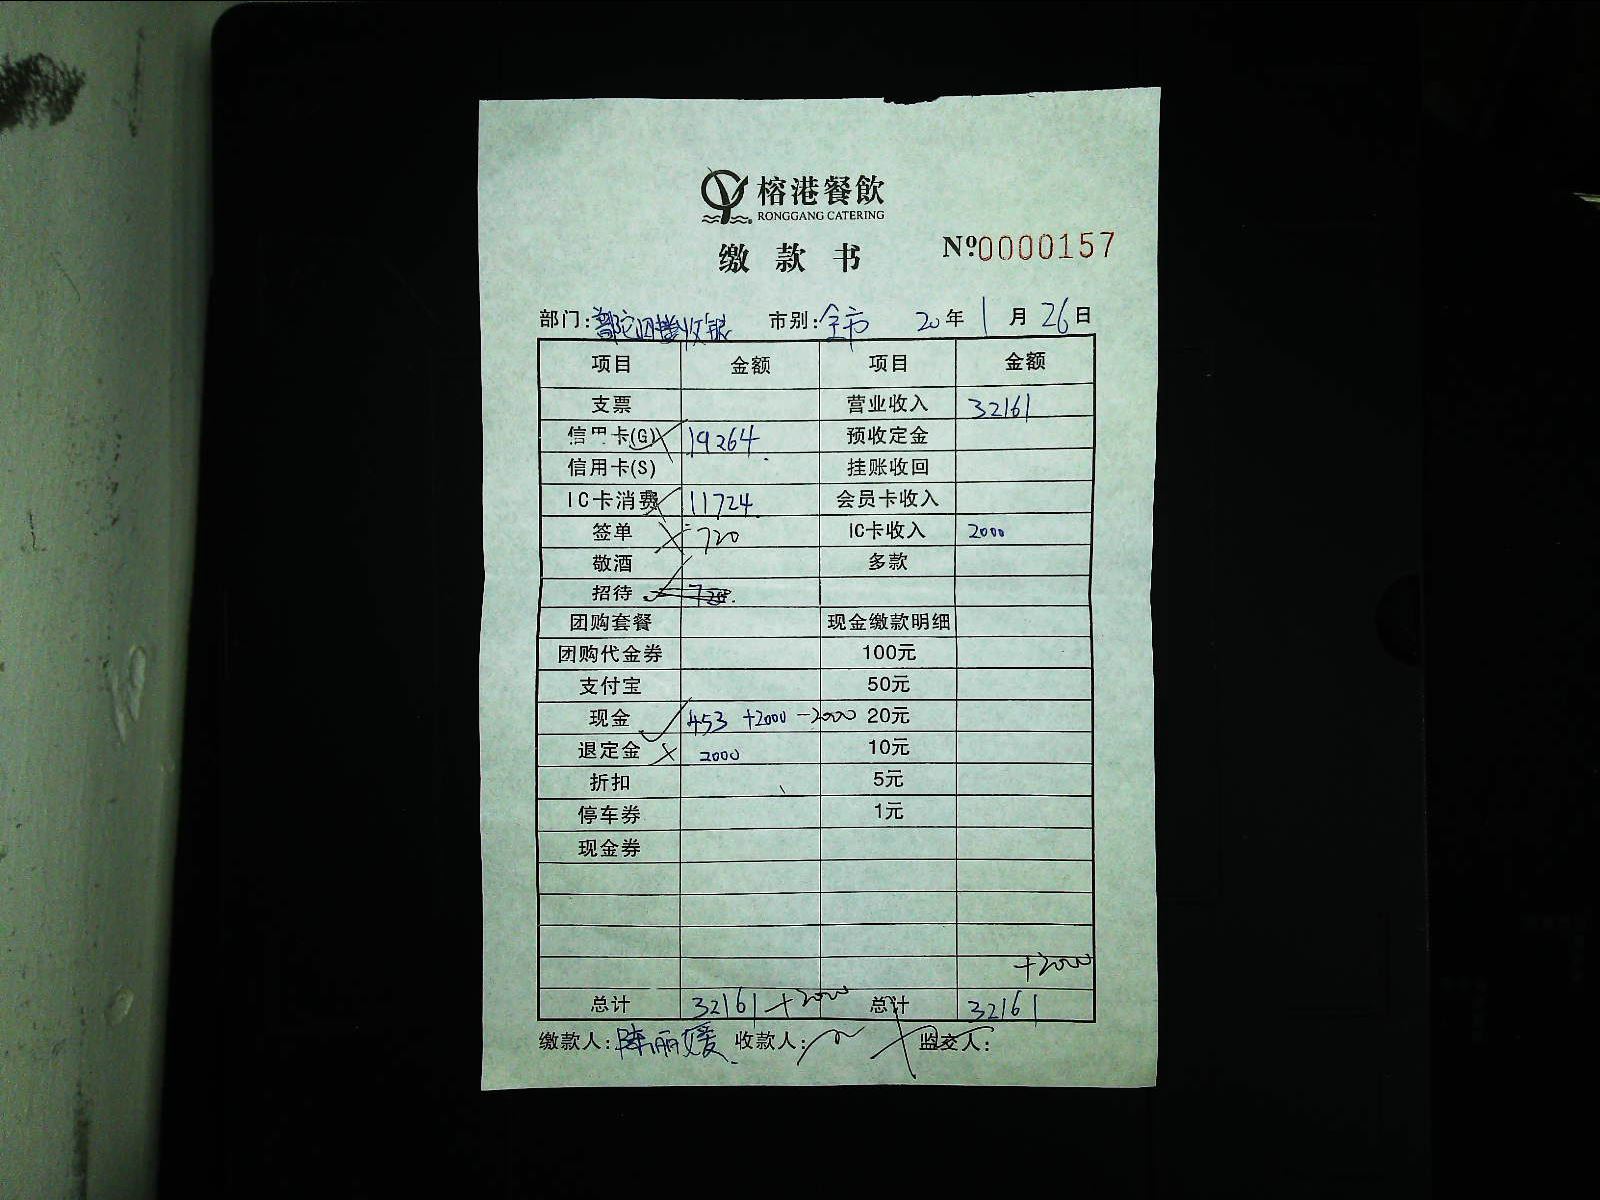 榕港餐飲
RONGGANG CATERING
缴款书 Nº0000157
部门:普陀四楼收银 市别:全市 20年1月26日
项目 金额 项目 金额
支票 营业收入 32161
信用卡(G) 19264. 预收定金
信用卡(S) 挂账收回
IC卡消费 11724. 会员卡收入
签单 720 IC卡收入 2000
敬酒 多款
招待 720.
团购套餐 现金缴款明细
团购代金券 100元
支付宝 50元
现金 453 +2000 -2000 20元
退定金 2000 10元
折扣 5元
停车券 1元
现金券
+2000
总计 32161 +2000 总计 32161
缴款人:陈丽媛 收款人: 监交人: